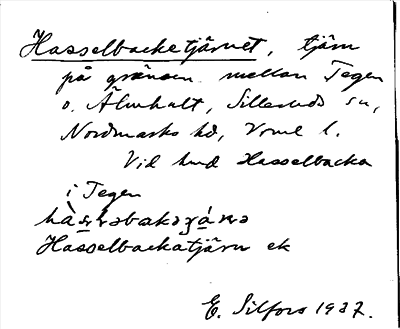 Hasselbacketjärnet, tjärn
på gränsen mellan Tegen
o. Älmhult, Silleruds sn,
Nordmarks hd, Vrml l.
Vid hmd Hasselbacka
i Tegen
Hasselbackatjärn ek
E. Silfors 1937.